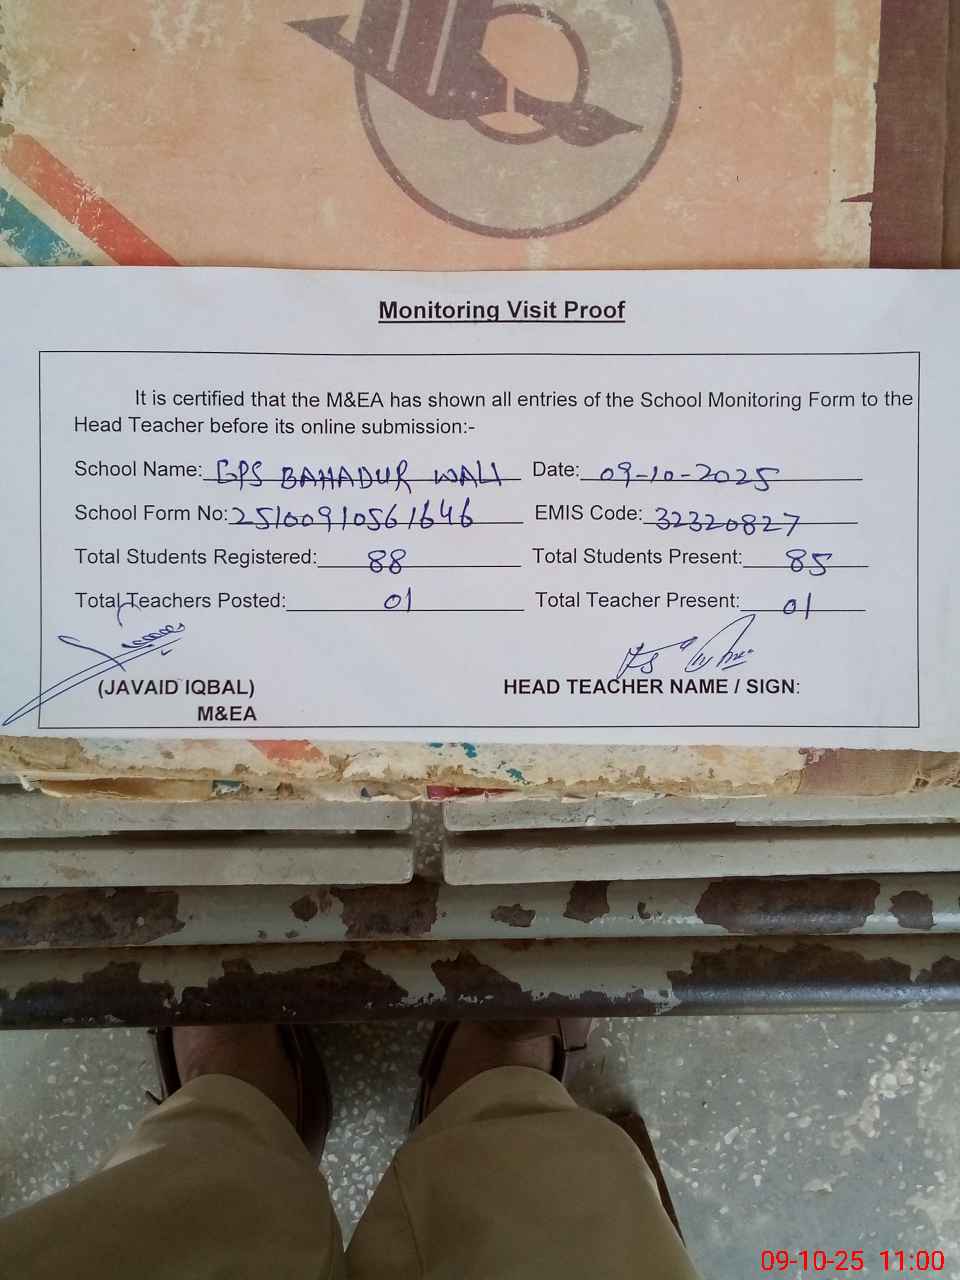 Monitoring Visit Proof
It is certified that the M&EA has shown all entries of the School Monitoring Form to the
Head Teacher before its online submission:-
School Name: GPS BAHADUR WALI Date: 09-10-2025
School Form No: 2510091056 1646 EMIS Code: 32320827
Total Students Registered: 88 Total Students Present: 85
Total Teachers Posted: 01 Total Teacher Present: 01
(JAVAID IQBAL) HEAD TEACHER NAME / SIGN:
M&EA
09-10-25 11:00